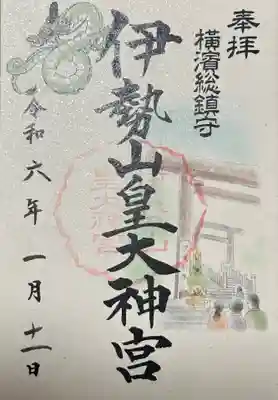 奉拝
横濱総鎮守
伊勢山皇大神宮
令和六年一月十一日